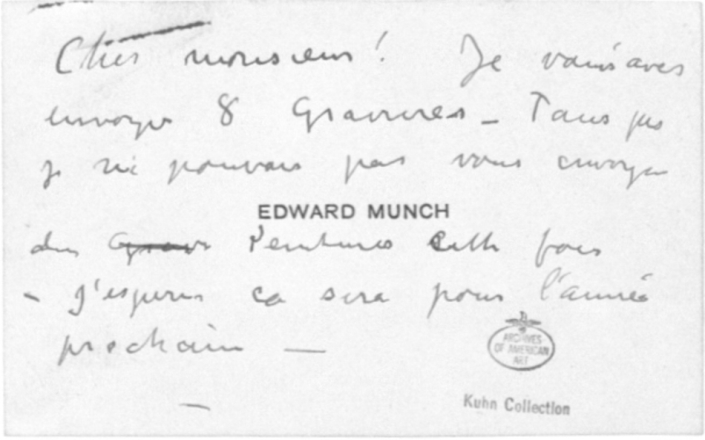 Cher monsieur! Je vous aves
envoyer 8 Gravures – Tans pis
je ne pouvais pas vous envoyer
EDWARD MUNCH
des Grav Peintures cette fois
– J'esperes ca sera pour l'année
prochain —
ARCHIVES
OF AMERICAN
ART
Kuhn Collection